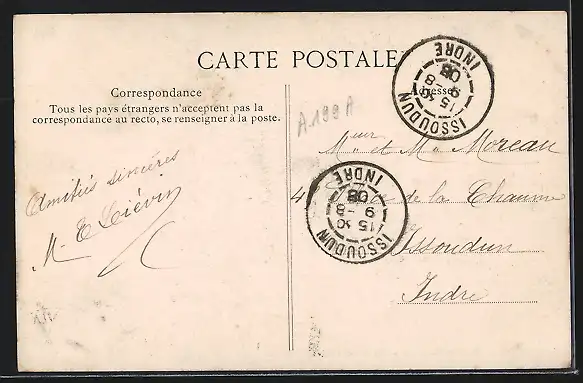 CARTE POSTALE
Correspondance
Tous les pays étrangers n'acceptent pas la
correspondance au recto, se renseigner à la poste.
Adresse
A 199 A
Amitiés sincères
M. E Liévin
Mr et Me Moreau
4 de la Chaume
Issoudun
Indre
ISSOUDUN
15 30
9 - 8
08
INDRE
ISSOUDUN
15 30
9 - 8
08
INDRE